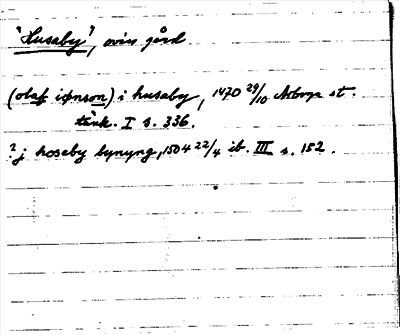 "Husaby", oviss gård
(olaf iønson) i husaby, 1470 29/10 Arboga st.
tänk. I s. 336.
? j hoseby bynyng, 1504 22/4 ib. III s. 152.